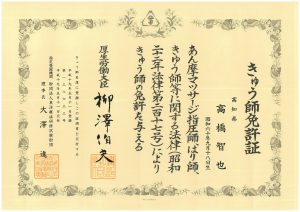 きゅう師免許証
高知県
高橋智也
昭和六十年九月十八日生
あん摩マツサージ指圧師、はり師、
きゆう師等に関する法律(昭和
二十二年法律第二百十七号)により
きゆう師の免許を与える
厚生労働大臣
柳澤伯夫
理事長 大澤 進